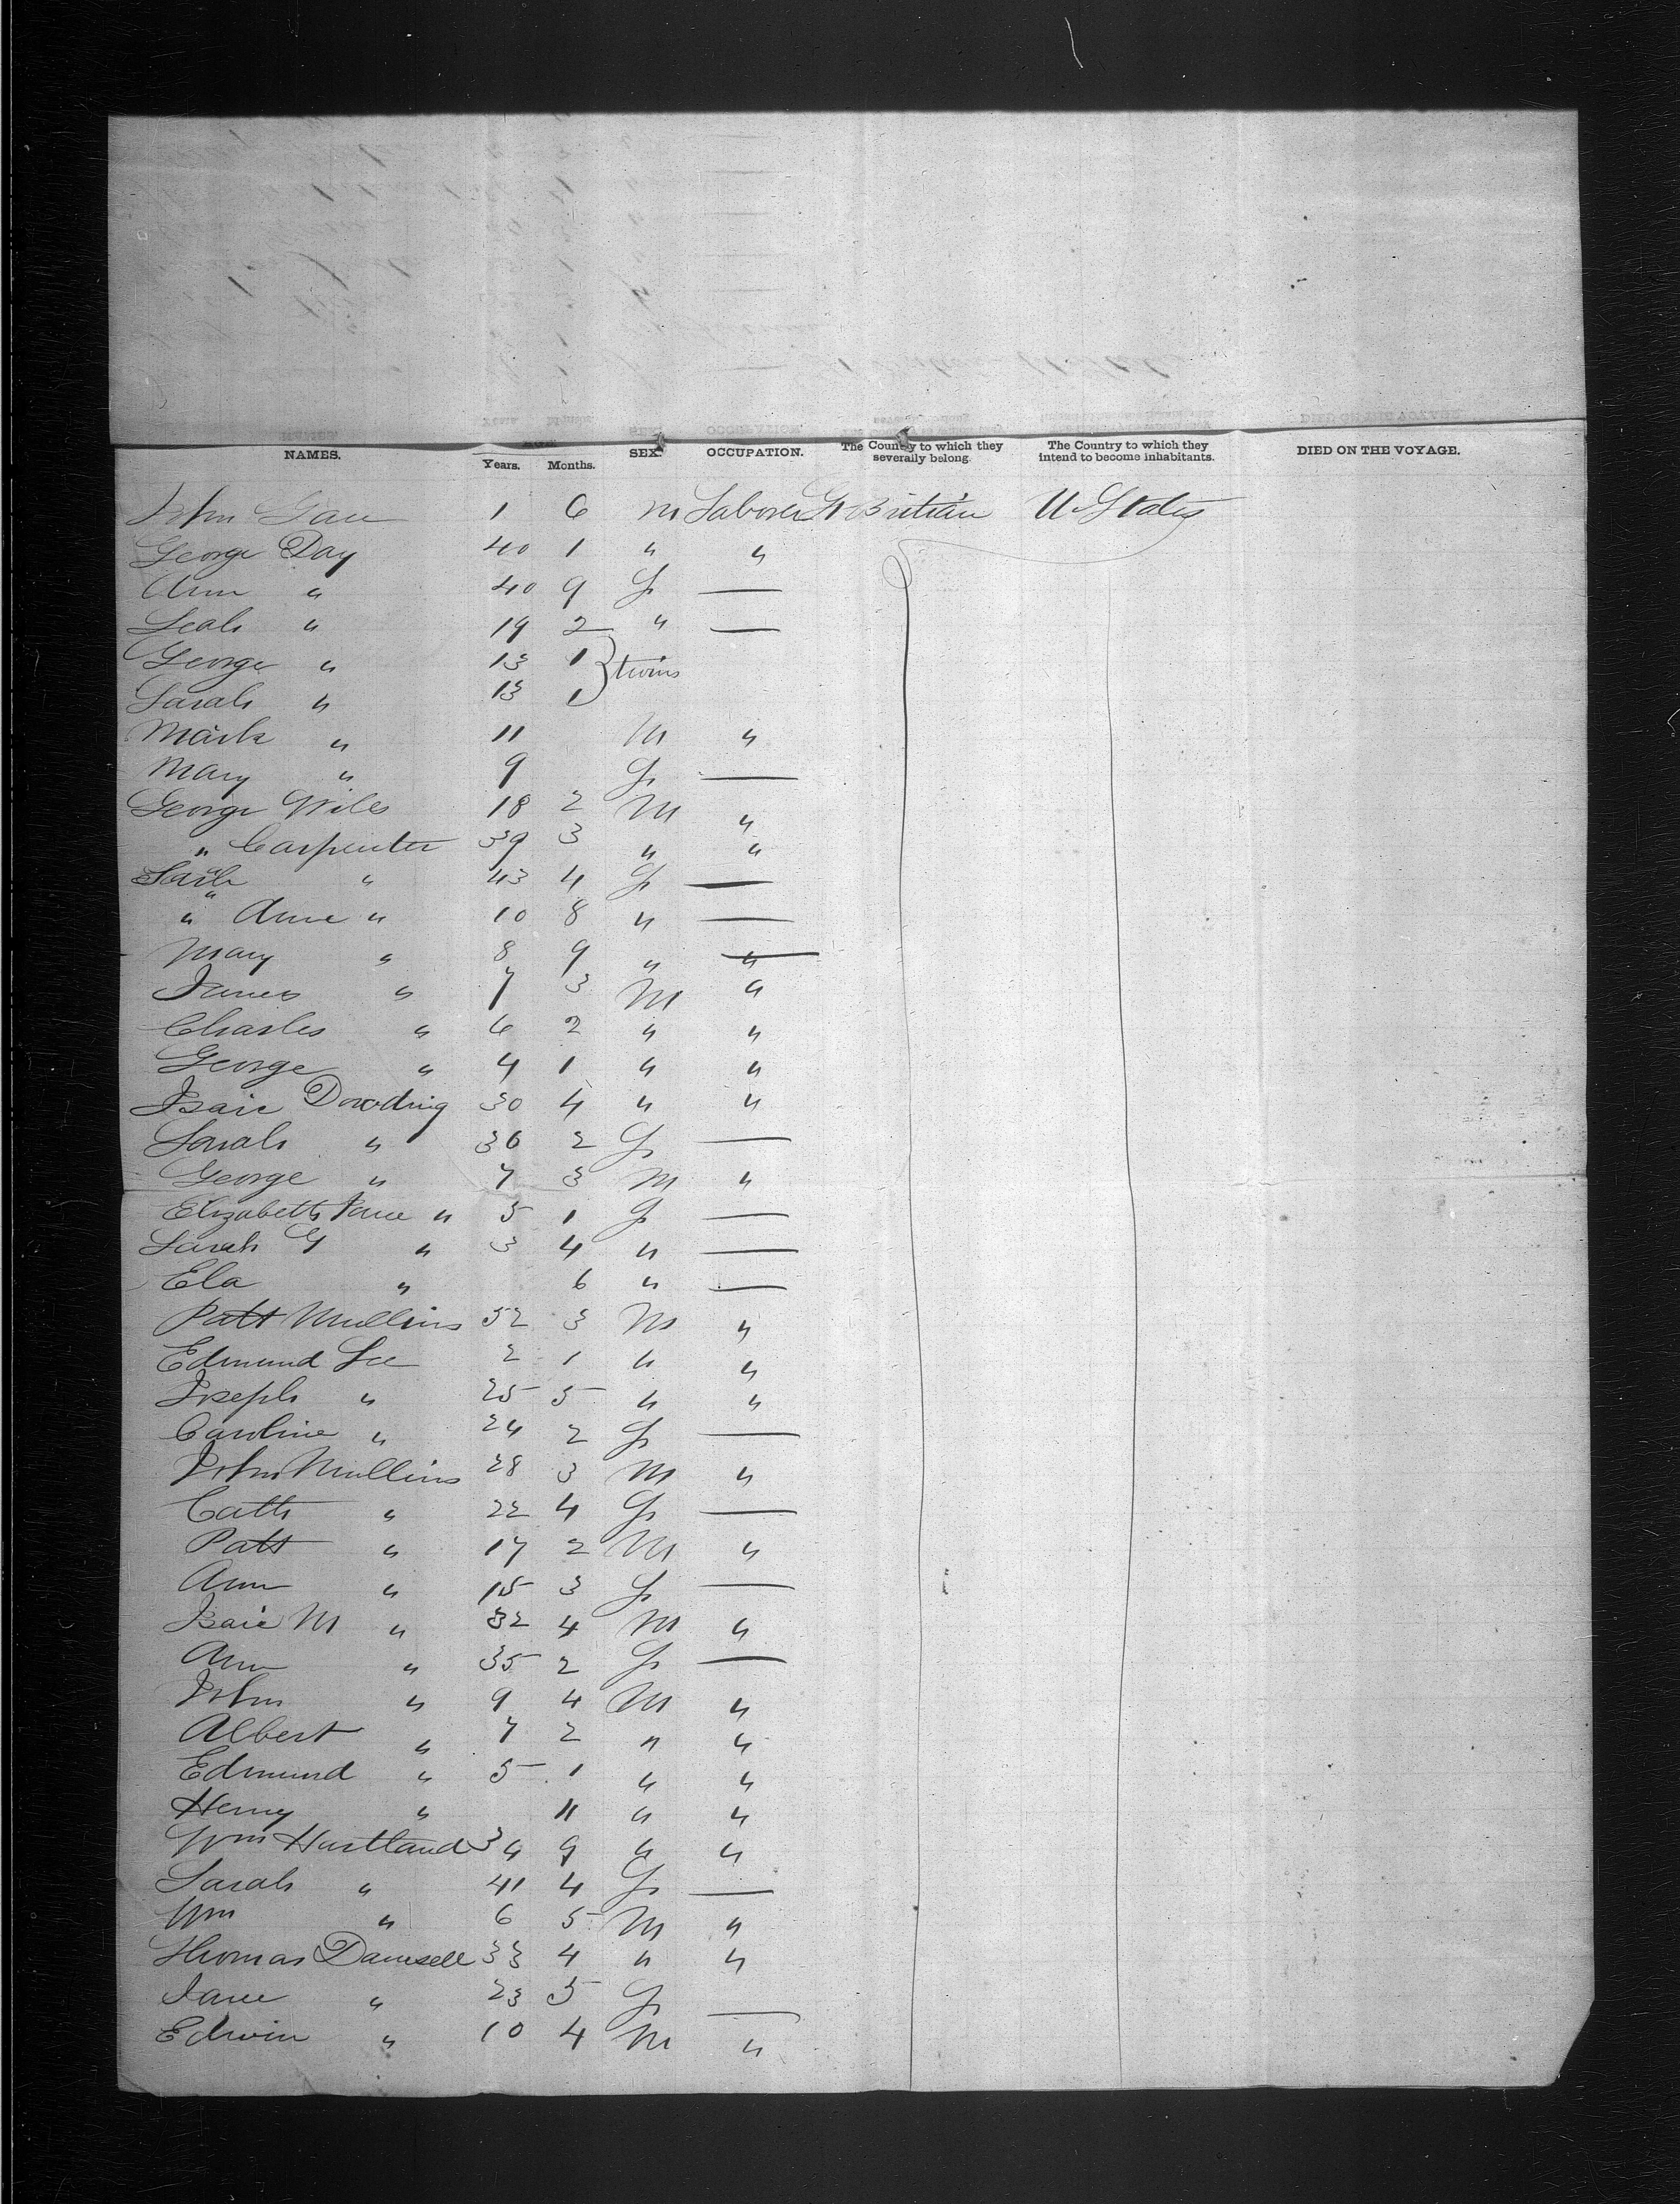 NAMES. AGE. Years. Months. SEX. OCCUPATION. The Country to which they severally belong. The Country to which they intend to become inhabitants. DIED ON THE VOYAGE.
John 1 6 M Laborer Gt Britian U States
George Day 40 1 " "
Ann " 40 9 F —
Leah " 19 2 " —
George " 13 1 } twins
Sarah " 13 1
Mark " 11 M "
Mary " 9 F —
George Wiles 18 2 M "
" Carpenter 39 3 " "
Sarh " 43 4 F —
" Anne " 10 8 " —
Mary " 8 9 " "
James " 7 3 M "
Charles " 6 2 " "
George " 4 1 " "
Isaic Dowding 30 4 " "
Sarah " 36 2 F —
George " 7 3 M "
Elizabeth Jane " 5 1 F —
Sarah G " 3 4 " —
Ela " 6 " —
Patt Mullins 52 3 M "
Edmund Lee 2 1 " "
Joseph " 25 5 " "
Caroline " 24 2 F —
John Mullins 28 3 M "
Cath " 22 4 F —
Patt " 17 2 M "
Ann " 15 3 F —
Isaic M " 32 4 M "
Ann " 35 2 F —
John " 9 4 M "
Albert " 7 2 " "
Edmund " 5 1 " "
Henry " 11 " "
Wm Hartland 39 9 " "
Sarah " 41 4 F —
Wm " 6 5 M "
Thomas Damsell 33 4 " "
Jane " 23 5 F —
Edwin " 10 4 M "